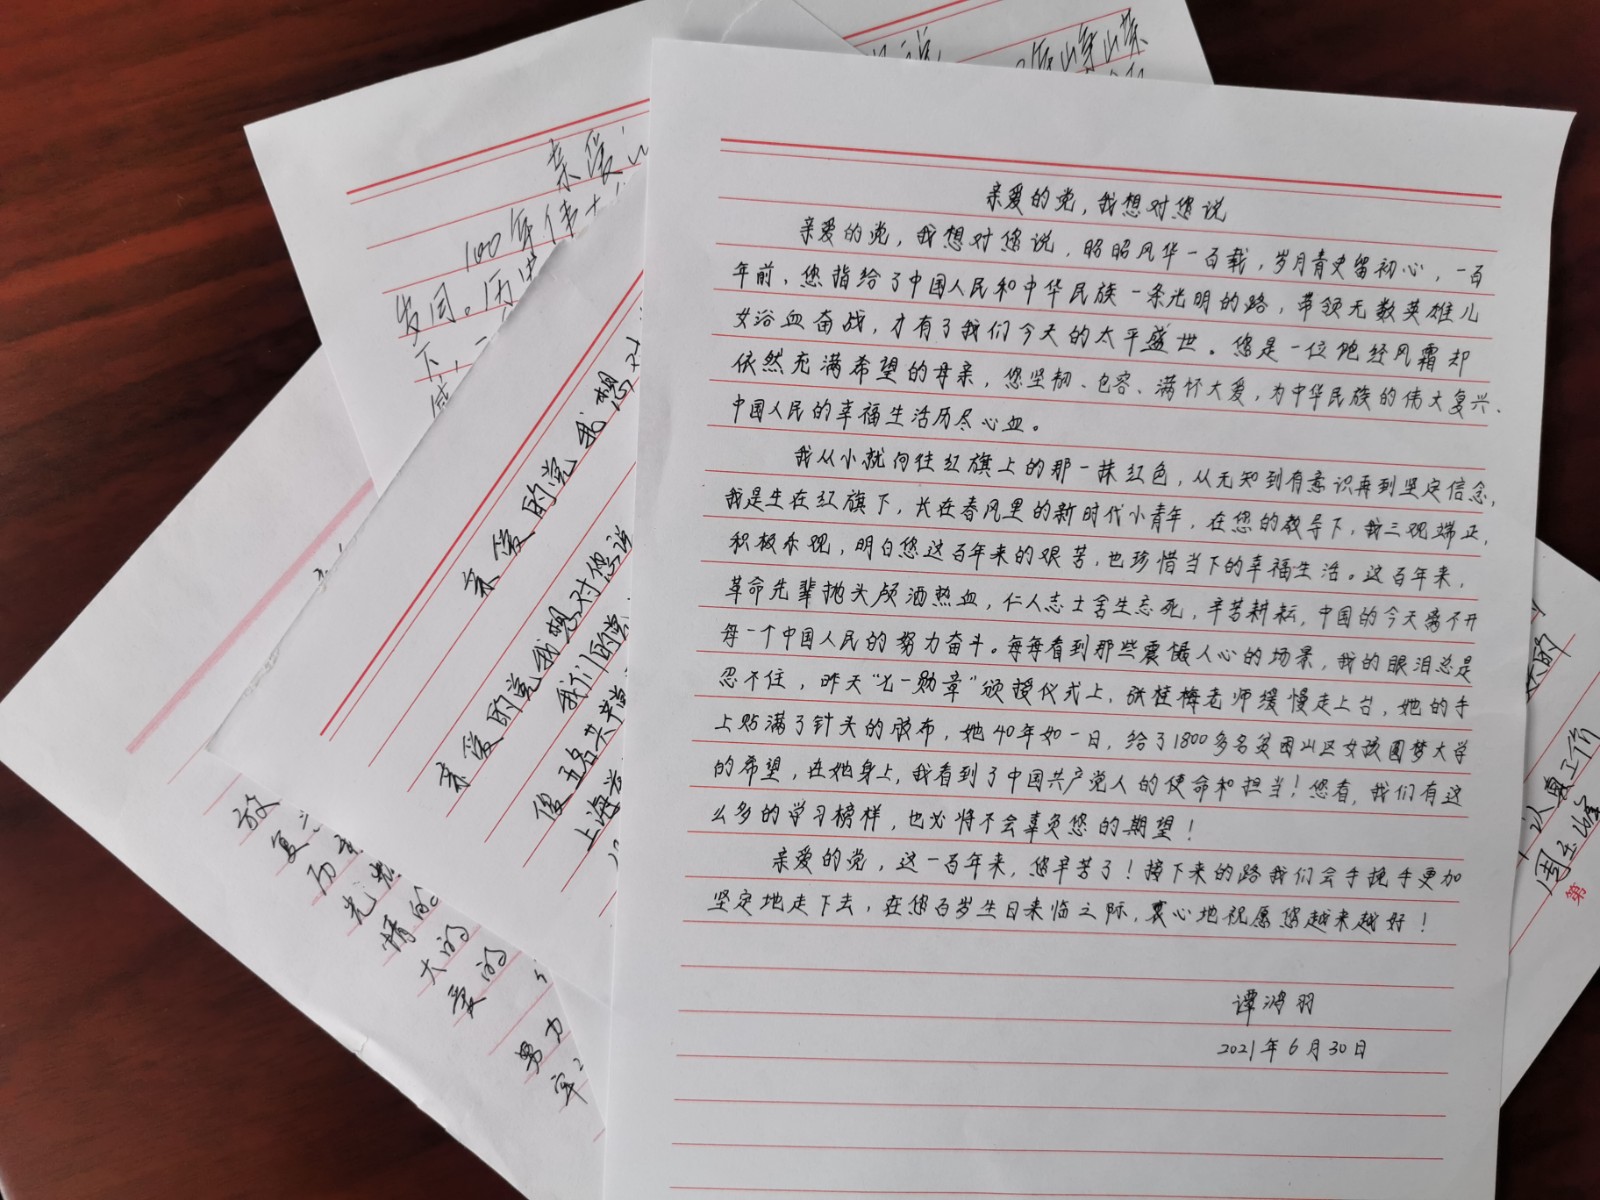 亲爱的党，我想对您说
亲爱的党，我想对您说，昭昭风华一百载，岁月青史留初心，一百
年前，您指给了中国人民和中华民族一条光明的路，带领无数英雄儿
女浴血奋战，才有了我们今天的太平盛世。您是一位饱经风霜却
依然充满希望的母亲，您坚韧、包容、满怀大爱，为中华民族的伟大复兴、
中国人民的幸福生活历尽心血。
我从小就向往红旗上的那一抹红色，从无知到有意识再到坚定信念，
我是生在红旗下，长在春风里的新时代小青年，在您的教导下，我三观端正，
积极乐观，明白您这百年来的艰苦，也珍惜当下的幸福生活。这百年来，
革命先辈抛头颅洒热血，仁人志士舍生忘死，辛苦耕耘，中国的今天离不开
每一个中国人民的努力奋斗。每每看到那些震撼人心的场景，我的眼泪总是
忍不住，昨天“七一勋章”颁授仪式上，张桂梅老师缓慢走上台，她的手
上贴满了针头的胶布，她40年如一日，给了1800多名贫困山区女孩圆梦大学
的希望，在她身上，我看到了中国共产党人的使命和担当！您看，我们有这
么多的学习榜样，也必将不会辜负您的期望！
亲爱的党，这一百年来，您辛苦了！接下来的路我们会手挽手更加
坚定地走下去，在您百岁生日来临之际，衷心地祝愿您越来越好！
谭鸿羽
2021年6月30日
亲爱
100年伟大
发园。历
下，
亲爱的党我想对
亲爱的党我想对您说
我们的党
上海
放
复
历
光
情的
大的
爱的
努力
牢
认真工作
第